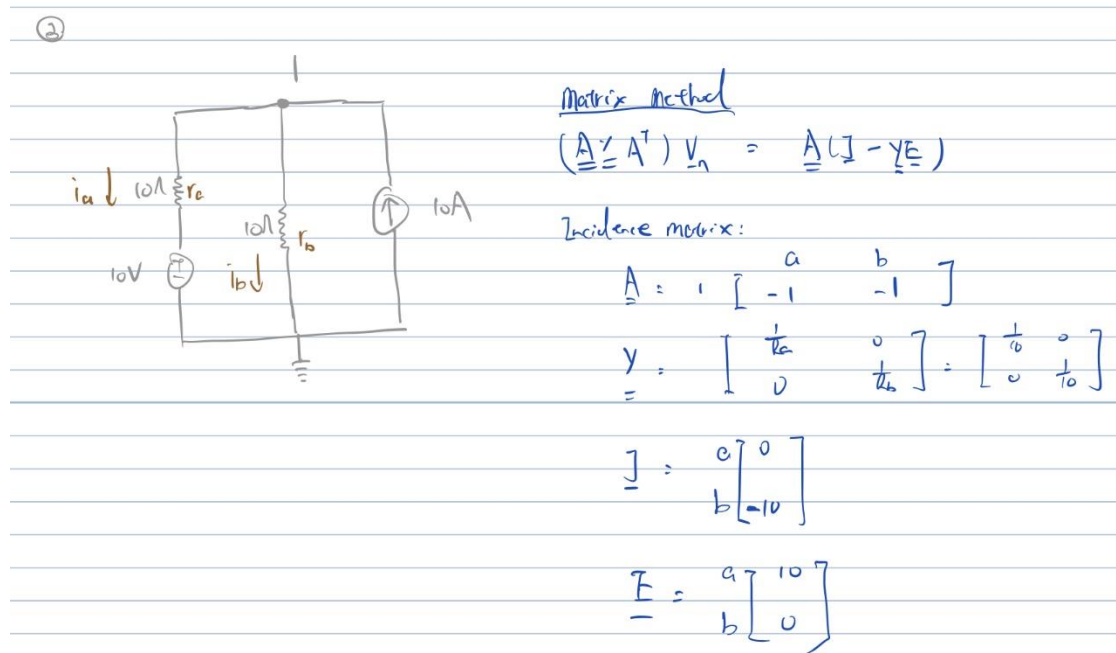 ②
1
i_a ↓ 10Ω r_a
10Ω r_b
↑ 10A
10V + −
i_b ↓
Matrix Method
(A Y A^T) V_n = A(J - YE)
Incidence matrix:
a b
A = 1 [ -1 -1 ]
Y = [ 1/Ra 0 ] = [ 1/10 0 ]
[ 0 1/Rb ] [ 0 1/10 ]
J = a [ 0 ]
b [ -10 ]
E = a [ 10 ]
b [ 0 ]